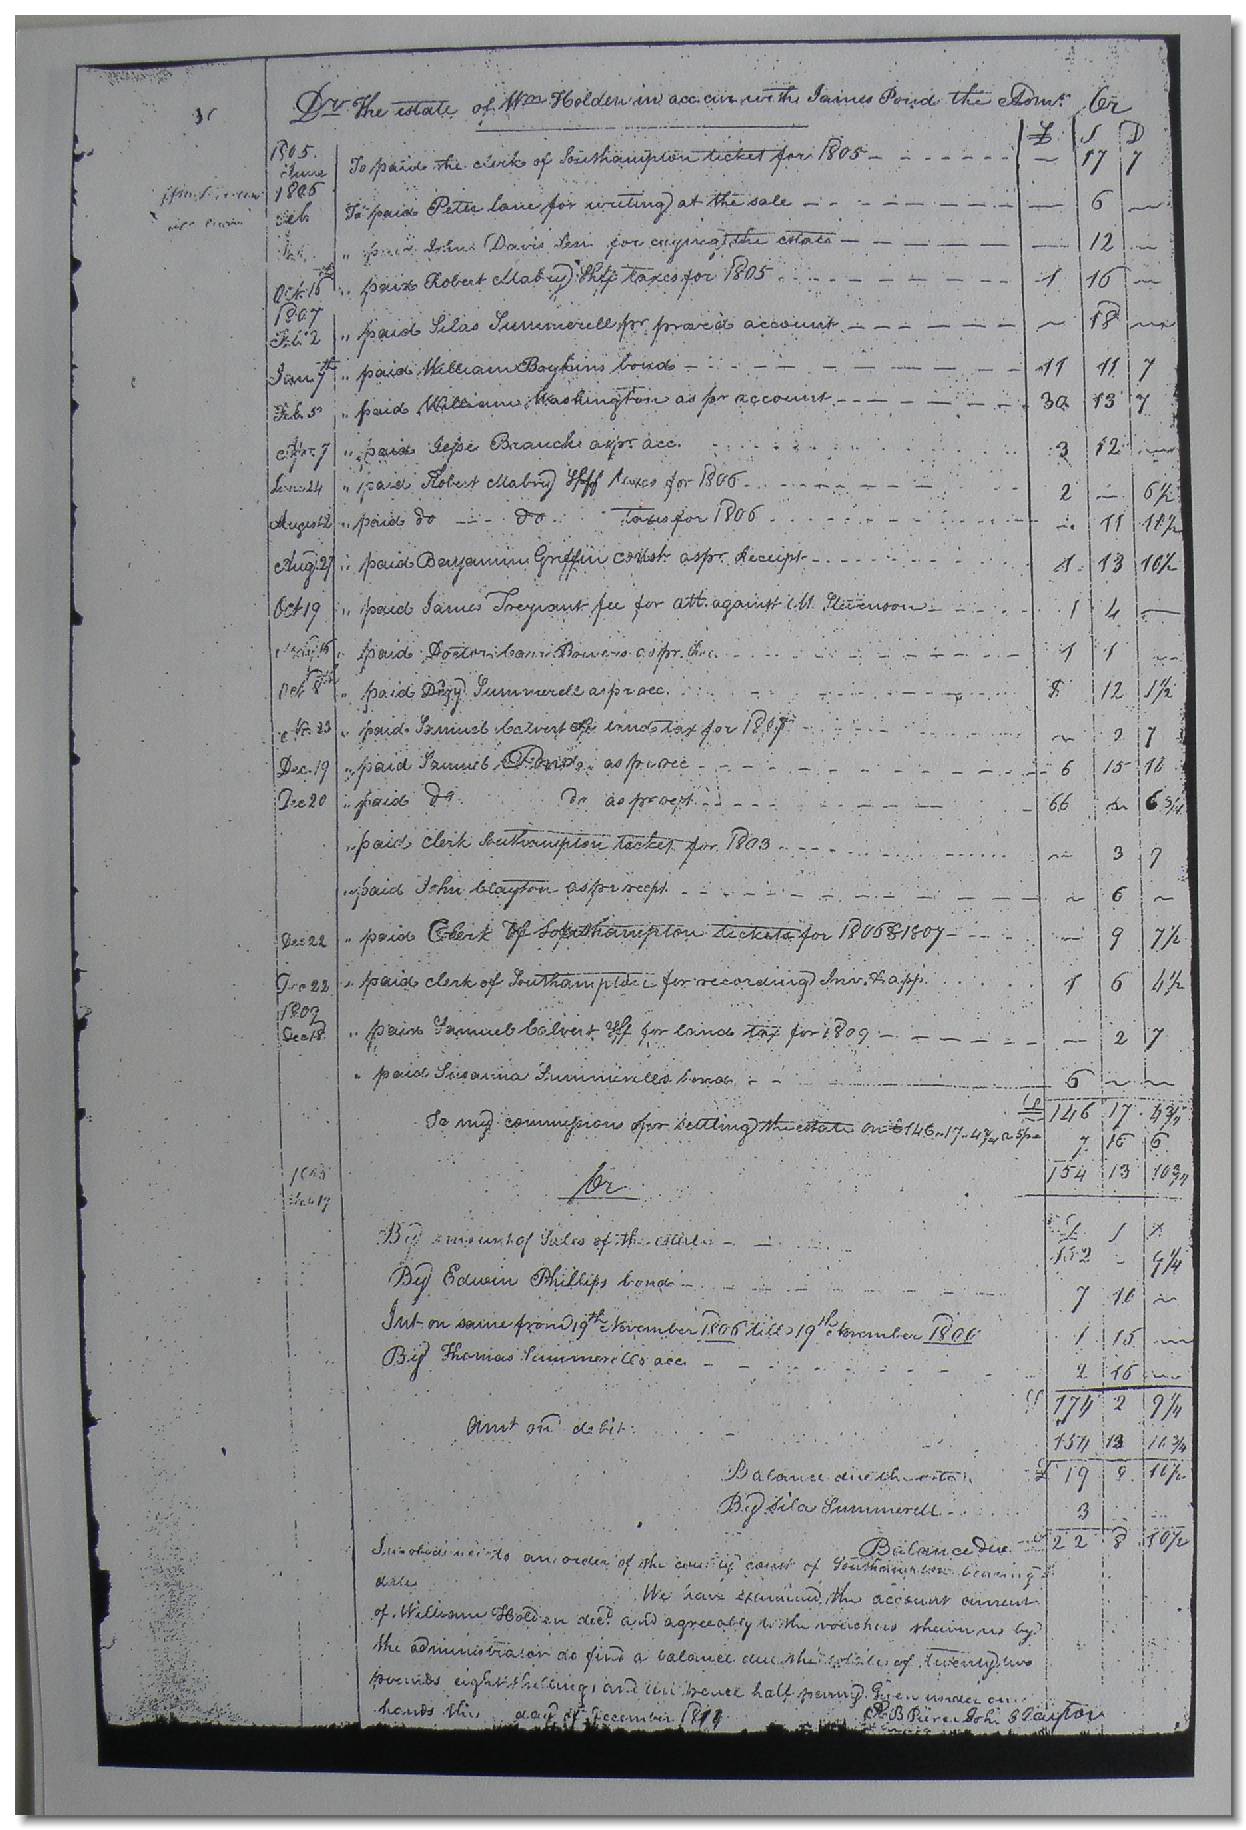 Dr The estate of Wm Holden in acc cur with James Pond the Admr. Cr
£ S D
1805.
June To paid the clerk of Southampton ticket for 1805 17 7
1806
Feb To paid Peter lane for writing at the sale 6
" paid John Davis Sen for crying the estate 12
Oct. 15th " paid Robert Mabry Shff taxes for 1805 1 16
1807
Feb. 2 " paid Silas Summerell pr. proved account 18
Jan 7th " paid William Boykins bond 11 11 7
Feb. 5 " paid William Washington as pr account 30 13 7
Apr. 7 " paid Jesse Branch as pr. acc. 3 12
June 24 " paid Robert Mabry Shff taxes for 1806 2 6½
August 2 " paid do do taxes for 1806 11 11½
Aug. 27 " paid Benjamin Griffin const. as pr. Receipt 1 13 10½
Oct 19 " paid James Trezvant fee for att. against M. Stevenson 1 4
" paid Doctor Bowers as pr. acc. 1 1
Oct 8th " paid Summerell as pr acc. 8 12 1½
23 " paid Samuel Calvert Shff land tax for 1807 2 7
Dec. 19 " paid Samuel Pond as pr acc 6 15 10
Dec 20 " paid do. do as pr acct. 66 6 ¾
" paid clerk Southampton ticket for 1803 3 9
" paid John Clayton as pr recpt 6
Dec 22 " paid Clerk of Southampton tickets for 1806 & 1807 9 7½
Dec 22 " paid clerk of Southampton for recording Inv. & app. 1 6 4½
1809
Dec 18 " paid Samuel Calvert Shff for land tax for 1809 2 7
" paid Susanna Summerells bond 6
£ 146 17 4¾
To my commission for settling the estate on £146-17-4¾ a 5 pr 7 16 6
154 13 10¾
Cr
£ S
By amount of Sales of the estate 9¼
By Edwin Phillips bond 7 10
Int on same from 19th November 1806 till 19th November 1 15
By Thomas Summerells acc 2 16
£ 174 2 9¼
Amt on debit 154 13 10¾
Balance due the estate £ 19 8 10½
By Sila Summerell 3
Balance due £ 22 8 10½
In obedience to an order of the county court of Southampton bearing
date We have examined the account current
of William Holden decd. and agreeably to the vouchers shewn us by
the administrator do find a balance due the estate of twenty two
pounds eight shillings and ten pence half penny. Given under our
hands this day of December 18 John Clayton